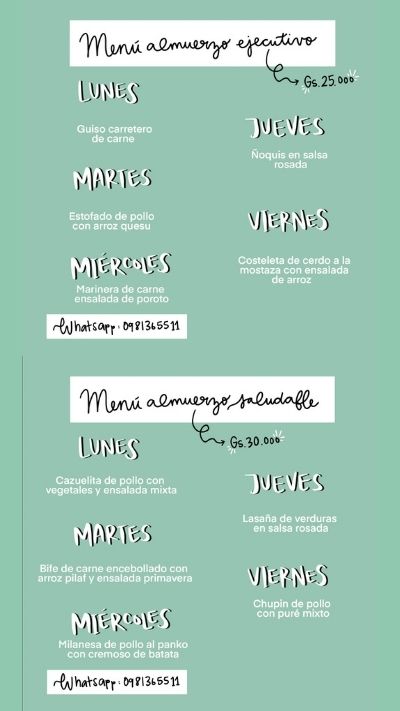 Menú almuerzo ejecutivo
Gs.25.000
LUNES
Guiso carretero
de carne
MARTES
Estofado de pollo
con arroz quesu
MIÉRCOLES
Marinera de carne
ensalada de poroto
JUEVES
Ñoquis en salsa
rosada
VIERNES
Costeleta de cerdo a la
mostaza con ensalada
de arroz
Whatsapp: 0981365511
Menú almuerzo saludable
Gs.30.000
LUNES
Cazuelita de pollo con
vegetales y ensalada mixta
MARTES
Bife de carne encebollado con
arroz pilaf y ensalada primavera
MIÉRCOLES
Milanesa de pollo al panko
con cremoso de batata
JUEVES
Lasaña de verduras
en salsa rosada
VIERNES
Chupin de pollo
con puré mixto
Whatsapp: 0981365511